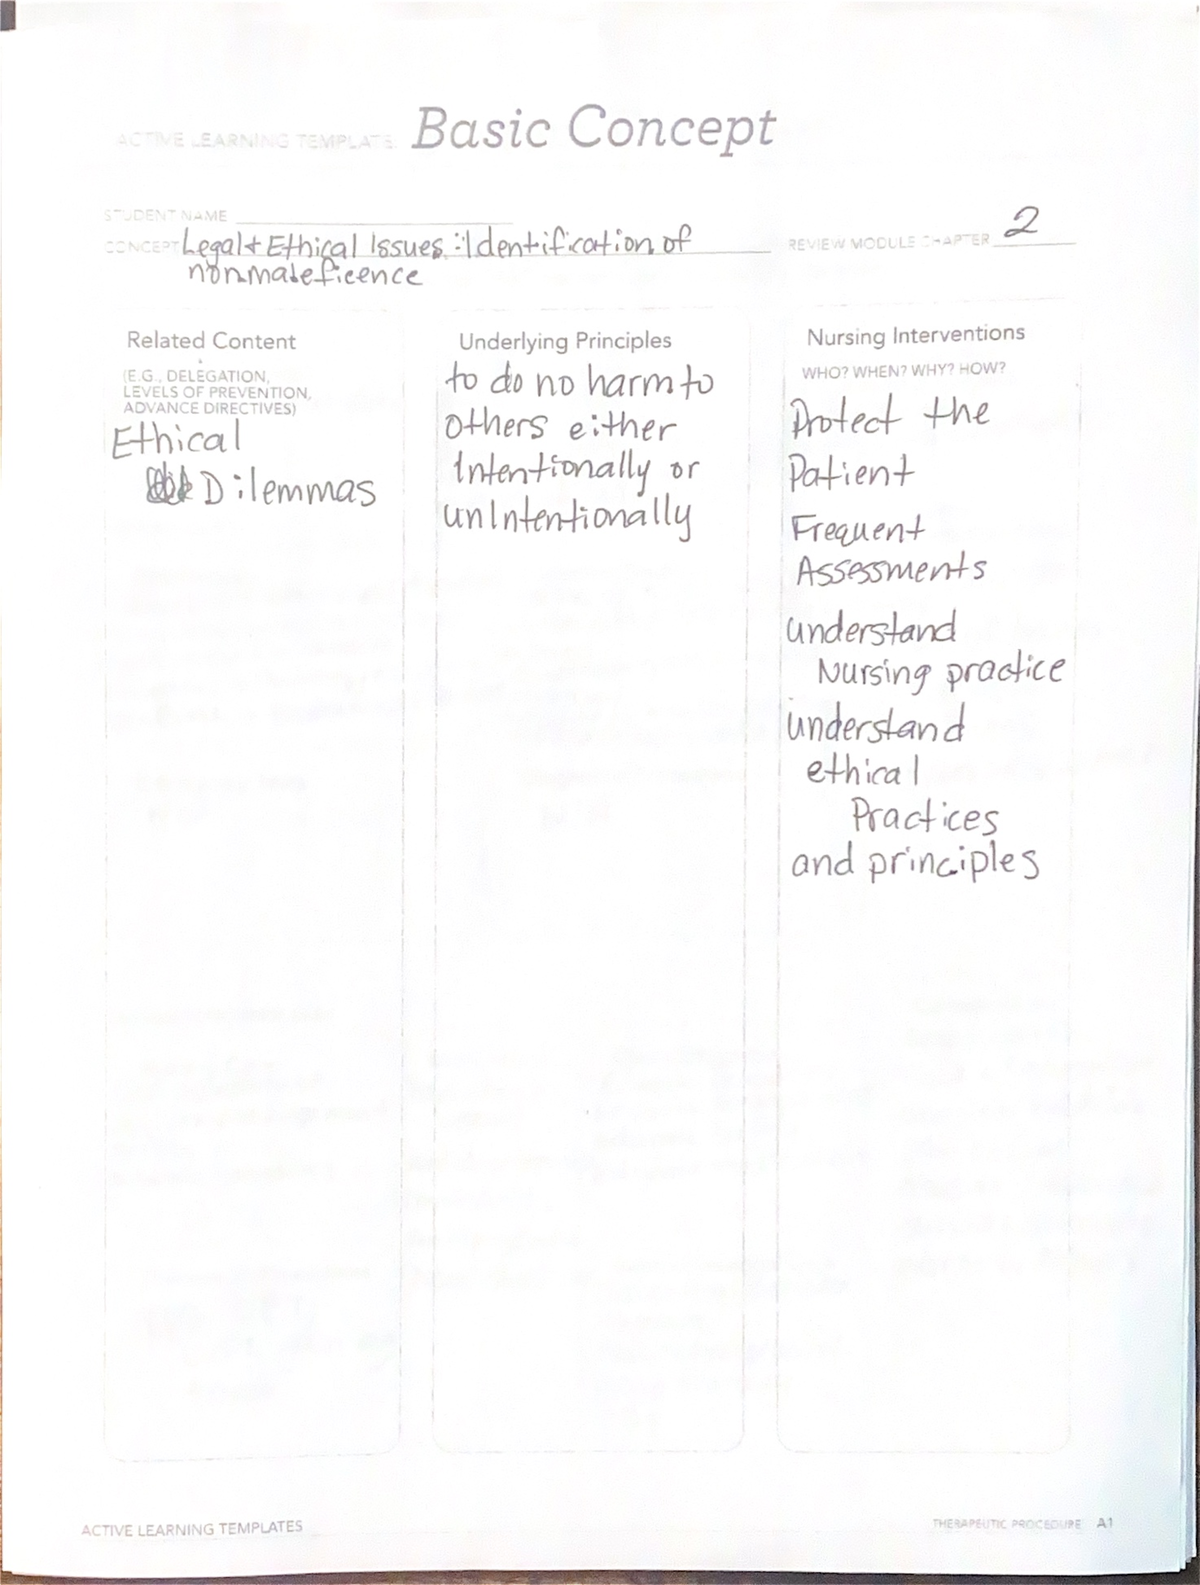 ACTIVE LEARNING TEMPLATE: Basic Concept
STUDENT NAME
CONCEPT Legal + Ethical Issues : Identification of
nonmaleficence
REVIEW MODULE CHAPTER 2
Related Content
(E.G., DELEGATION,
LEVELS OF PREVENTION,
ADVANCE DIRECTIVES)
Ethical
Dilemmas
Underlying Principles
to do no harm to
others either
Intentionally or
unIntentionally
Nursing Interventions
WHO? WHEN? WHY? HOW?
Protect the
Patient
Frequent
Assessments
understand
Nursing practice
understand
ethical
Practices
and principles
ACTIVE LEARNING TEMPLATES
THERAPEUTIC PROCEDURE A1